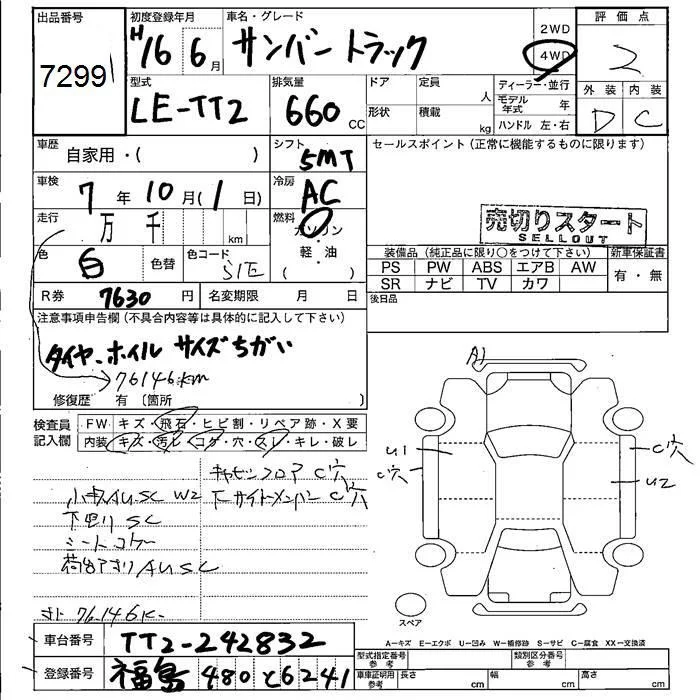 出品番号
7299
初度登録年月
H16 6月
車名・グレード
サンバートラック
2WD
4WD
評価点
2
外装 内装
D C
型式
LE-TT2
排気量
660 CC
ドア
定員
人
形状
積載
kg
ディーラー・並行
モデル年式 年
ハンドル 左・右
車歴
自家用・( )
シフト
5MT
セールスポイント (正常に機能するものに限ります)
車検
7年10月(1日)
冷房
AC
走行
万 千 km
燃料
ガソリン
軽・油
( )
売切りスタート
SELLOUT
色
白
色替
色コード
51E
装備品 (純正品に限り○をつけて下い)
新車保証書
PS PW ABS エアB AW
有・無
SR ナビ TV カワ
R券 7630 円
名変期限 月 日
後日品
注意事項申告欄 (不具合内容等は具体的に記入して下さい)
タイヤ・ホイル サイズちがい
76146km
修復歴 有 〔箇所 〕
検査員記入欄
FW キズ・飛石・ヒビ割・リペア跡・X要
内装 キズ・汚レ・コゲ・穴・スレ・キレ・破レ
キャビンフロア C穴
C穴
W2
下廻り SC
シートコゲ
荷台アオリ AU SC
A1
U1
C穴
C穴
U2
スペア
A―キズ E―エクボ U―凹み W―補修跡 S―サビ C―腐食 XX―交換済
車台番号
TT2-242832
登録番号
福島 480 と 6241
型式指定番号
参考
類別区分番号
参考
車庫証明用
参考
長さ cm
幅 cm
高さ cm